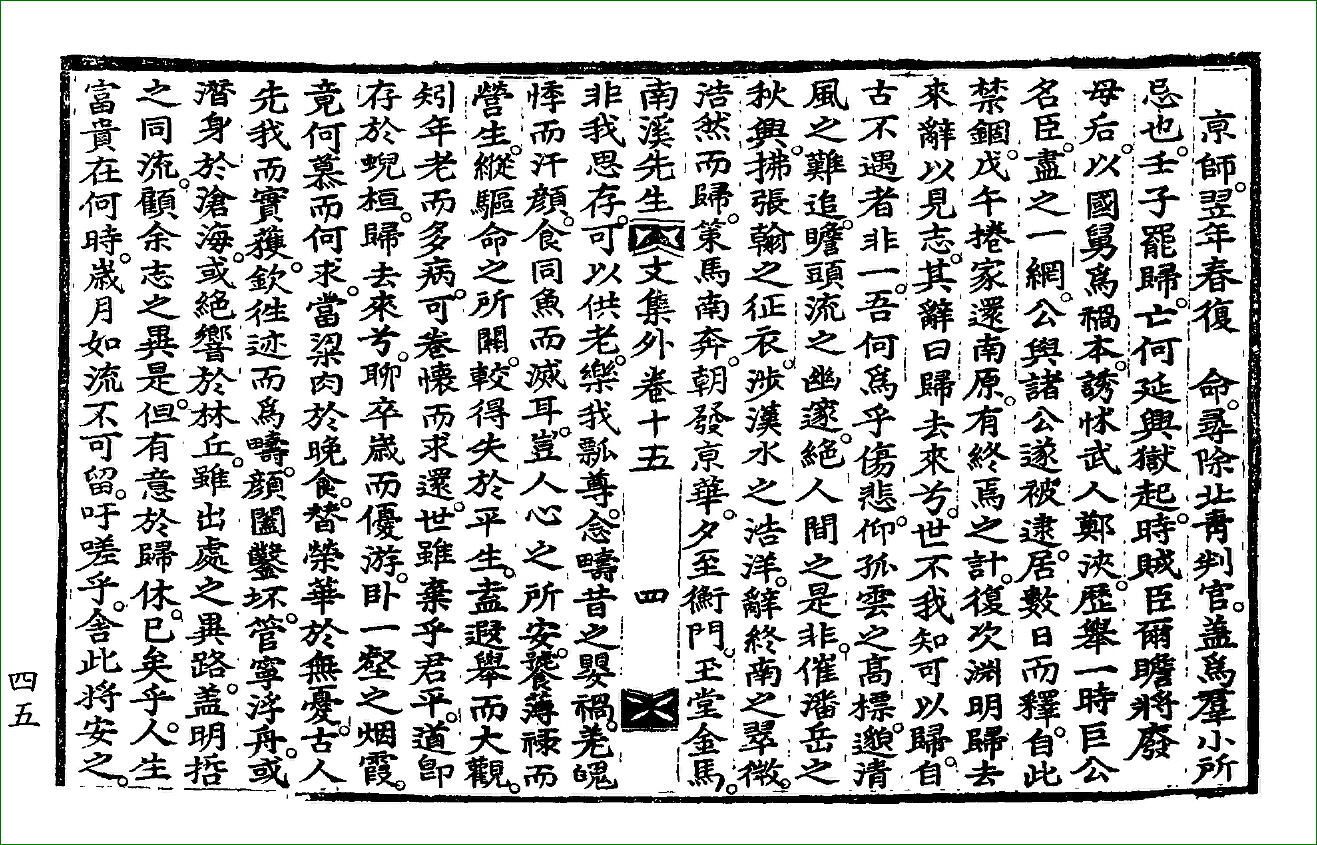 京師。翌年春復　命。尋除北靑判官。盖爲羣小所
忌也。壬子罷歸。亡何延興獄起。時賊臣爾瞻將廢
母后。以國舅爲禍本。誘怵武人鄭浹。歷舉一時巨公
名臣。盡之一網。公與諸公遂被逮。居數日而釋。自此
禁錮。戊午捲家還南原。有終焉之計。復次淵明歸去
來辭以見志。其辭曰歸去來兮。世不我知可以歸。自
古不遇者非一。吾何爲乎傷悲。仰孤雲之高標。邈淸
風之難追。瞻頭流之幽邃。絶人間之是非。催潘岳之
秋興。拂張翰之征衣。涉漢水之浩洋。辭終南之翠微。
浩然而歸。策馬南奔。朝發京華。夕至衡門。玉堂金馬。
南溪先生文集外卷十五　四
非我思存。可以供老。樂我瓢尊。念疇昔之嬰禍。羌愧
悸而汗顔。食同魚而滅耳。豈人心之所安。饕薄祿而
營生。縱驅命之所關。較得失於平生。盍遐舉而大觀。
矧年老而多病。可卷懷而求還。世雖棄乎君平。道卽
存於蜺桓。歸去來兮。聊卒歲而優游。臥一壑之烟霞。
竟何慕而何求。當梁肉於晚食。替榮華於無憂。古人
先我而實獲。欽徃迹而爲疇。顔闔鑿坏。管寧浮舟。或
潛身於滄海。或絶響於林丘。雖出處之異路。盖明哲
之同流。顧余志之異是。但有意於歸休。已矣乎。人生
富貴在何時。歲月如流不可留。吁嗟乎。舍此將安之。
四五